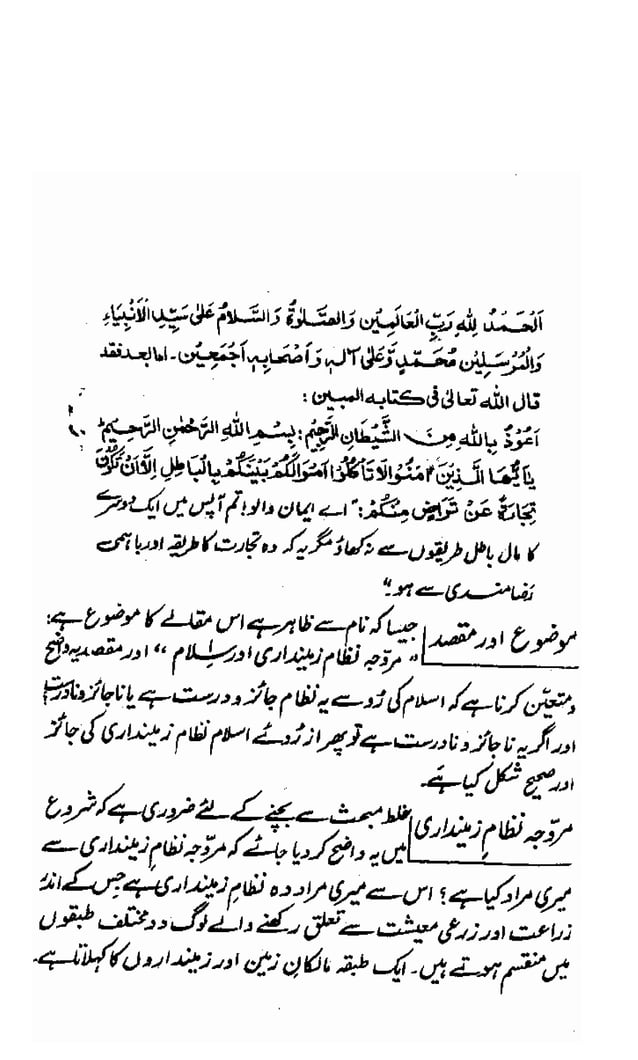 اَلْحَمْدُ لِلّٰهِ رَبِّ الْعَالَمِیْن وَالصَّلٰوۃُ وَالسَّلَامُ عَلیٰ سَیِّدِ الْاَنْبِیَاءِ
وَالْمُرْسَلِیْن مُحَمَّدٍ وَّعَلیٰ آلِہٖ وَاَصْحَابِہٖ اَجْمَعِیْن ۔ امابعد فقد
قال اللہ تعالیٰ فی کتابہ المبین :
اَعُوْذُ بِاللّٰهِ مِنَ الشَّیْطَانِ الرَّجِیْم ؛ بِسْمِ اللّٰهِ الرَّحْمٰنِ الرَّحِیْم ط
یٰاَیُّهَا الَّذِیْنَ اٰمَنُوْا لَا تَاْکُلُوْا اَمْوَالَکُمْ بَیْنَکُمْ بِالْبَاطِلِ اِلَّا اَنْ تَکُوْنَ
تِجَارَۃً عَنْ تَرَاضٍ مِنْکُمْ : ”اے ایمان والو! تم آپس میں ایک دوسرے
کا مال باطل طریقوں سے نہ کھاؤ مگر یہ کہ وہ تجارت کا طریقہ اور باہمی
رضامندی سے ہو۔“
موضوع اور مقصد جیسا کہ نام سے ظاہر ہے اس مقالے کا موضوع ہے:
”مروّجہ نظام زمینداری اور اسلام“ اور مقصد یہ واضح
و متعیّن کرنا ہے کہ اسلام کی رُو سے یہ نظام جائز و درست ہے یا ناجائز و نادرست
اور اگر یہ ناجائز و نادرست ہے تو پھر از رُوئے اسلام نظام زمینداری کی جائز
اور صحیح شکل کیا ہے۔
مروّجہ نظامِ زمینداری غلط مبحث سے بچنے کے لئے ضروری ہے کہ شروع
میں یہ واضح کر دیا جائے کہ مروّجہ نظامِ زمینداری سے
میری مراد کیا ہے؟ اس سے میری مراد وہ نظامِ زمینداری ہے جس کے اندر
زراعت اور زرعی معیشت سے تعلق رکھنے والے لوگ دو مختلف طبقوں
میں منقسم ہوتے ہیں۔ ایک طبقہ مالکانِ زمین اور زمینداروں کا کہلاتا ہے۔